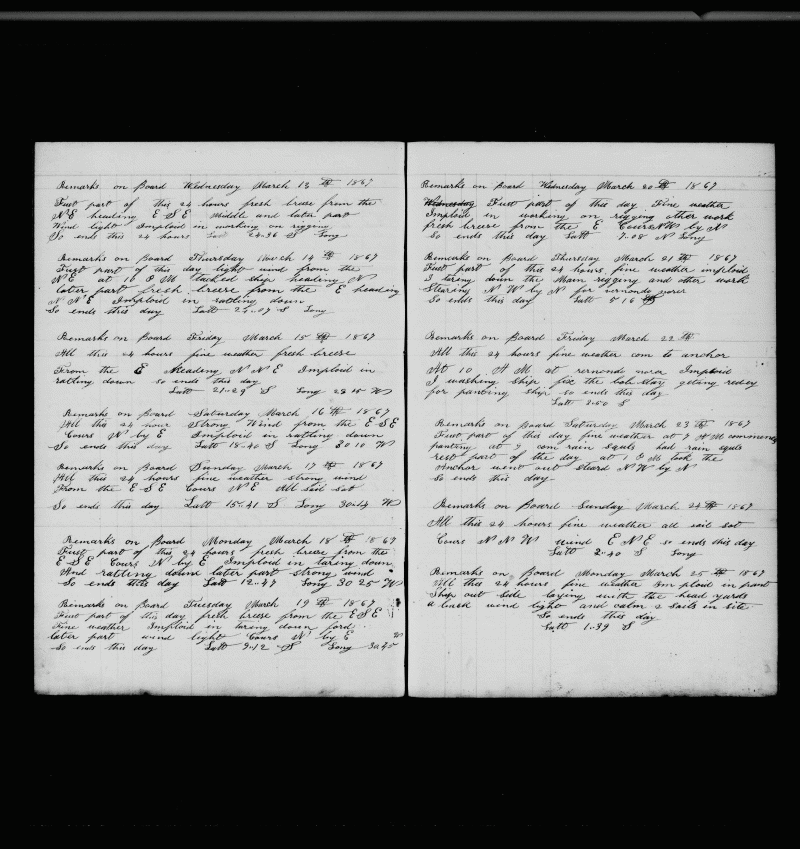 Remarks on Board Wednesday March 13 th 1867
First part of this 24 hours fresh breese from the
N E heading E S E Middle and later part
Wind light Imploid in working on rigging
So ends this 24 hours Latt 24-36 S Long
Remarks on Board Thursday March 14 th 1867
First part of this day light wind from the
N E at 10 P M tacked ship heading N
later part fresh breese from the E heading
N N E Imploid in ratling down
So ends this day Latt 24-07 S Long
Remarks on Board Friday March 15 th 1867
All this 24 hours fine weather fresh breese
From the E Heading N N E Imploid in
ratling down so ends this day
Latt 21-29 S Long 28 15 W
Remarks on Board Saturday March 16 th 1867
All this 24 hour Strong Wind from the E S E
Cours N by E Imploid in ratling down
So ends this day Latt 18-40 S Long 30 10 W
Remarks on Board Sunday March 17 th 1867
All this 24 hours fine weather strong wind
From the E S E Cours N E All sail sot
So ends this day Latt 15-41 S Long 30-14 W
Remarks on Board Monday March 18 th 1867
First part of this 24 hours fresh breese from the
E S E Cours N by E Imploid in taring down
And ratling down later part strong wind
So ends this day Latt 12-47 Long 30 25 W
Remarks on Board Tuesday March 19 th 1867
First part of this day fresh breese from the E S E
Fine weather Imploid in taring down ford
later part wind light Cours N by E
So ends this day Latt 9-12 S Long 30 45 W
Remarks on Board Wednesday March 20 th 1867
Wednesday First part of this day Fine weather
Imploid in working on rigging other work
fresh breese from the E Cours N W by N
So ends this day Latt 7-08 N Long
Remarks on Board Thursday March 21 th 1867
First part of this 24 hours fine weather imploid
I taring down the Main rigging and other work
Stearing N W by N for
So ends this day Latt 5 16 S
Remarks on Board Friday March 22 th
All this 24 hours fine weather com to anchor
At 10 A M at Imploid
I washing Ship fix the bob stay geting redey
for panting ship so ends this day
Latt 3-50 S
Remarks on Board Saturday March 23 th 1867
First part of this day fine weather at 7 A M commenced
panting at 9 com rain squls had rain squls
rest part of the day at 1 P M took the
Anchor went out Steard N W by N
So ends this day
Remarks on Board Sunday March 24 th 1867
All this 24 hours fine weather all sail sot
Cours N N W wind E N E so ends this day
Latt 2-40 S Long
Remarks on Board Monday March 25 th 1867
All this 24 hours fine weather Im ploid in pant
Ship out side laying with the head yards
a back wind light and calm 2 Sails in site
So ends this day
Latt 1-39 S